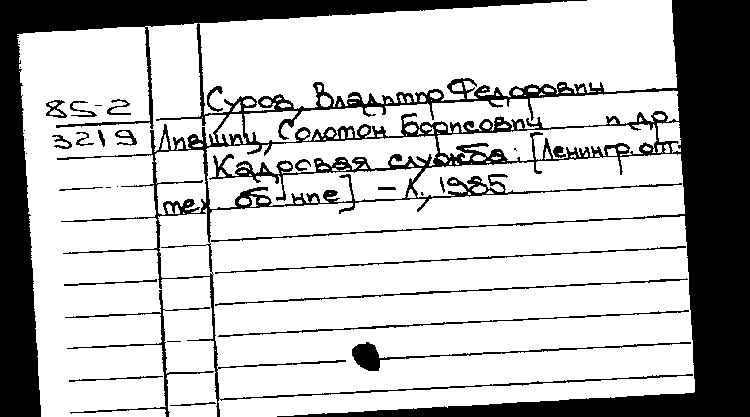 85-2 Суров, Владимир Федорович
3219 Лившиц, Соломон Борисович и др.
Кадровая служба: [Ленингр. опт.-
мех. об-ние] – Л., 1985